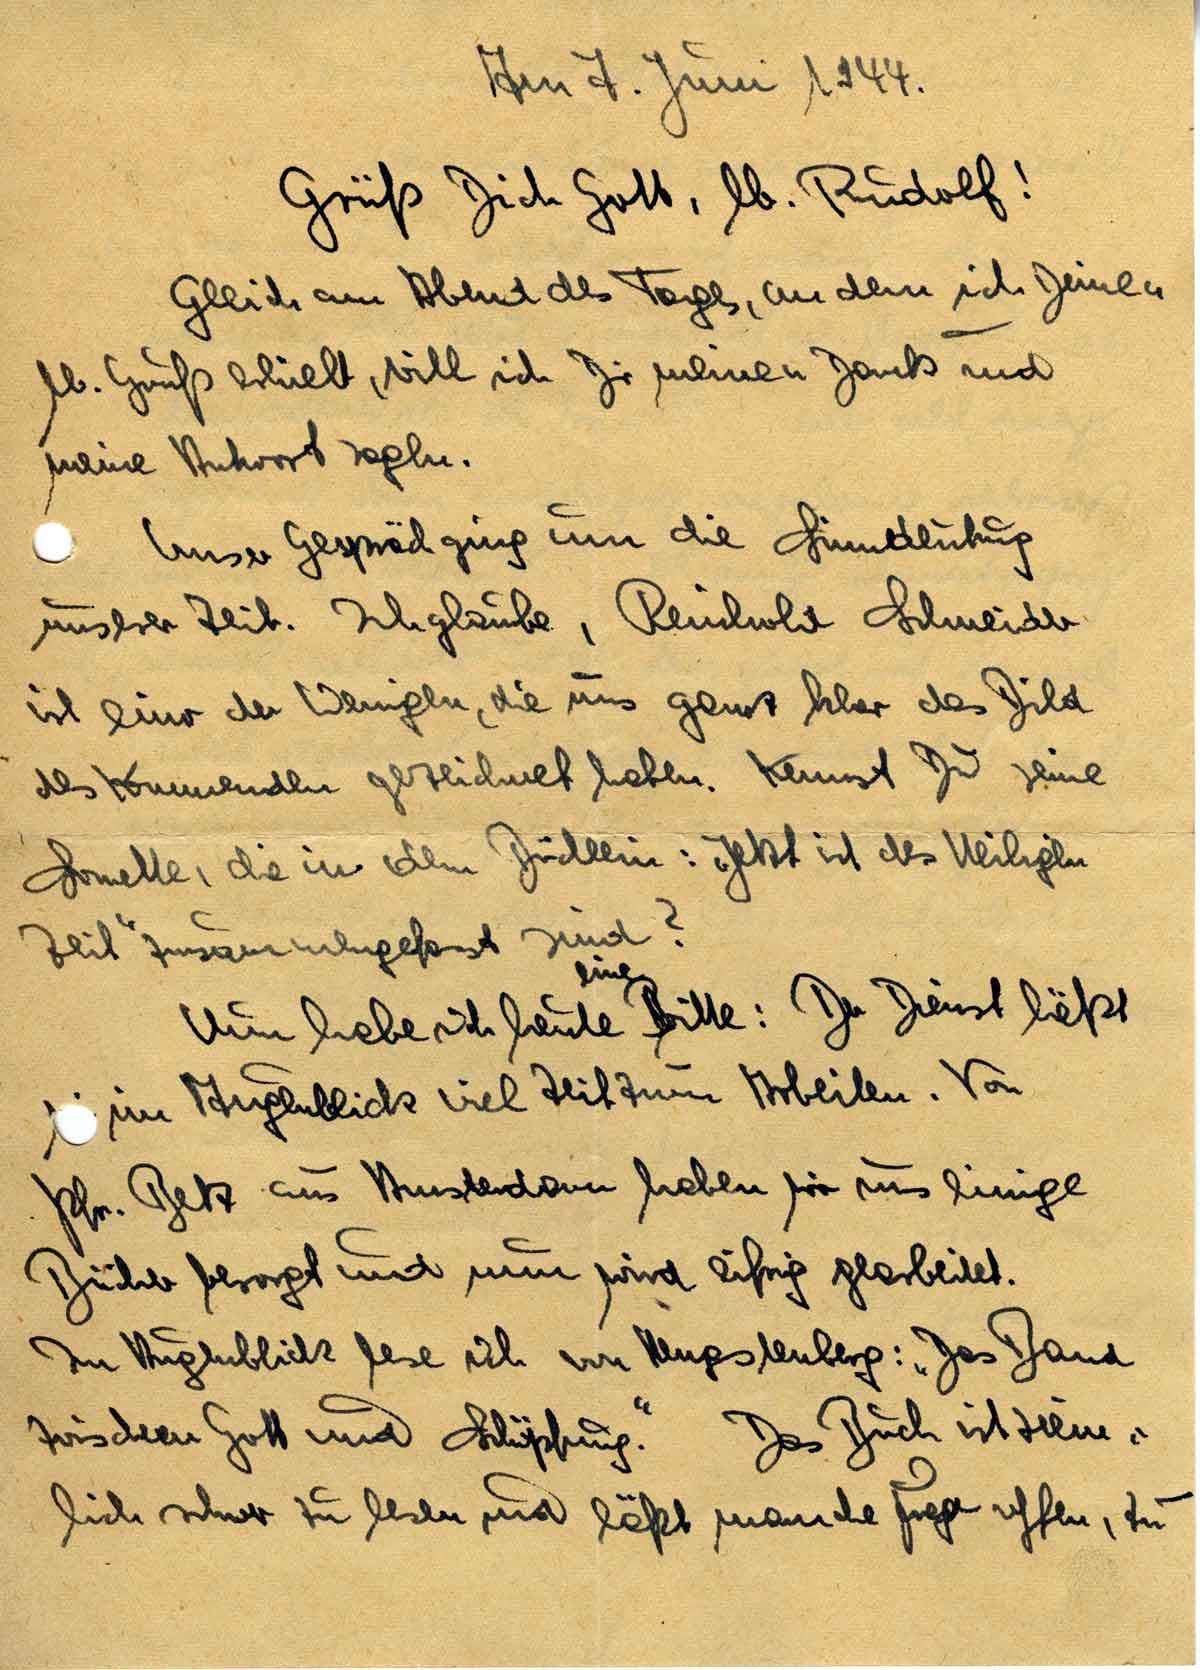 Am 7. Juni 1944.
Grüß Dich Gott, lb. Rudolf!
Gleich am Abend des Tages, an dem ich Deinen
lb. Gruß erhielt, will ich Dir meinen Dank und
meine Antwort sagen.
Unser Gespräch ging um die Sinndeutung
unserer Zeit. Ich glaube, Reinhold Schneider
ist einer der Wenigen, die uns ganz klar das Bild
des Kommenden gezeichnet haben. Kennst Du seine
Sonette, die in dem Büchlein: „Jetzt ist des Heiligen
Zeit" zusammengefasst sind?
Nun habe ich heute eine Bitte: Der Dienst läßt
im Augenblick viel Zeit zum Arbeiten. Von
Pfr. Betz aus Amsterdam haben wir uns einige
Bücher besorgt und nun wird eifrig gearbeitet.
Im Augenblick lese ich von Hengstenberg: „Das Band
zwischen Gott und Schöpfung." Das Buch ist ziem-
lich schwer zu lesen und läßt manche Frage offen, zu